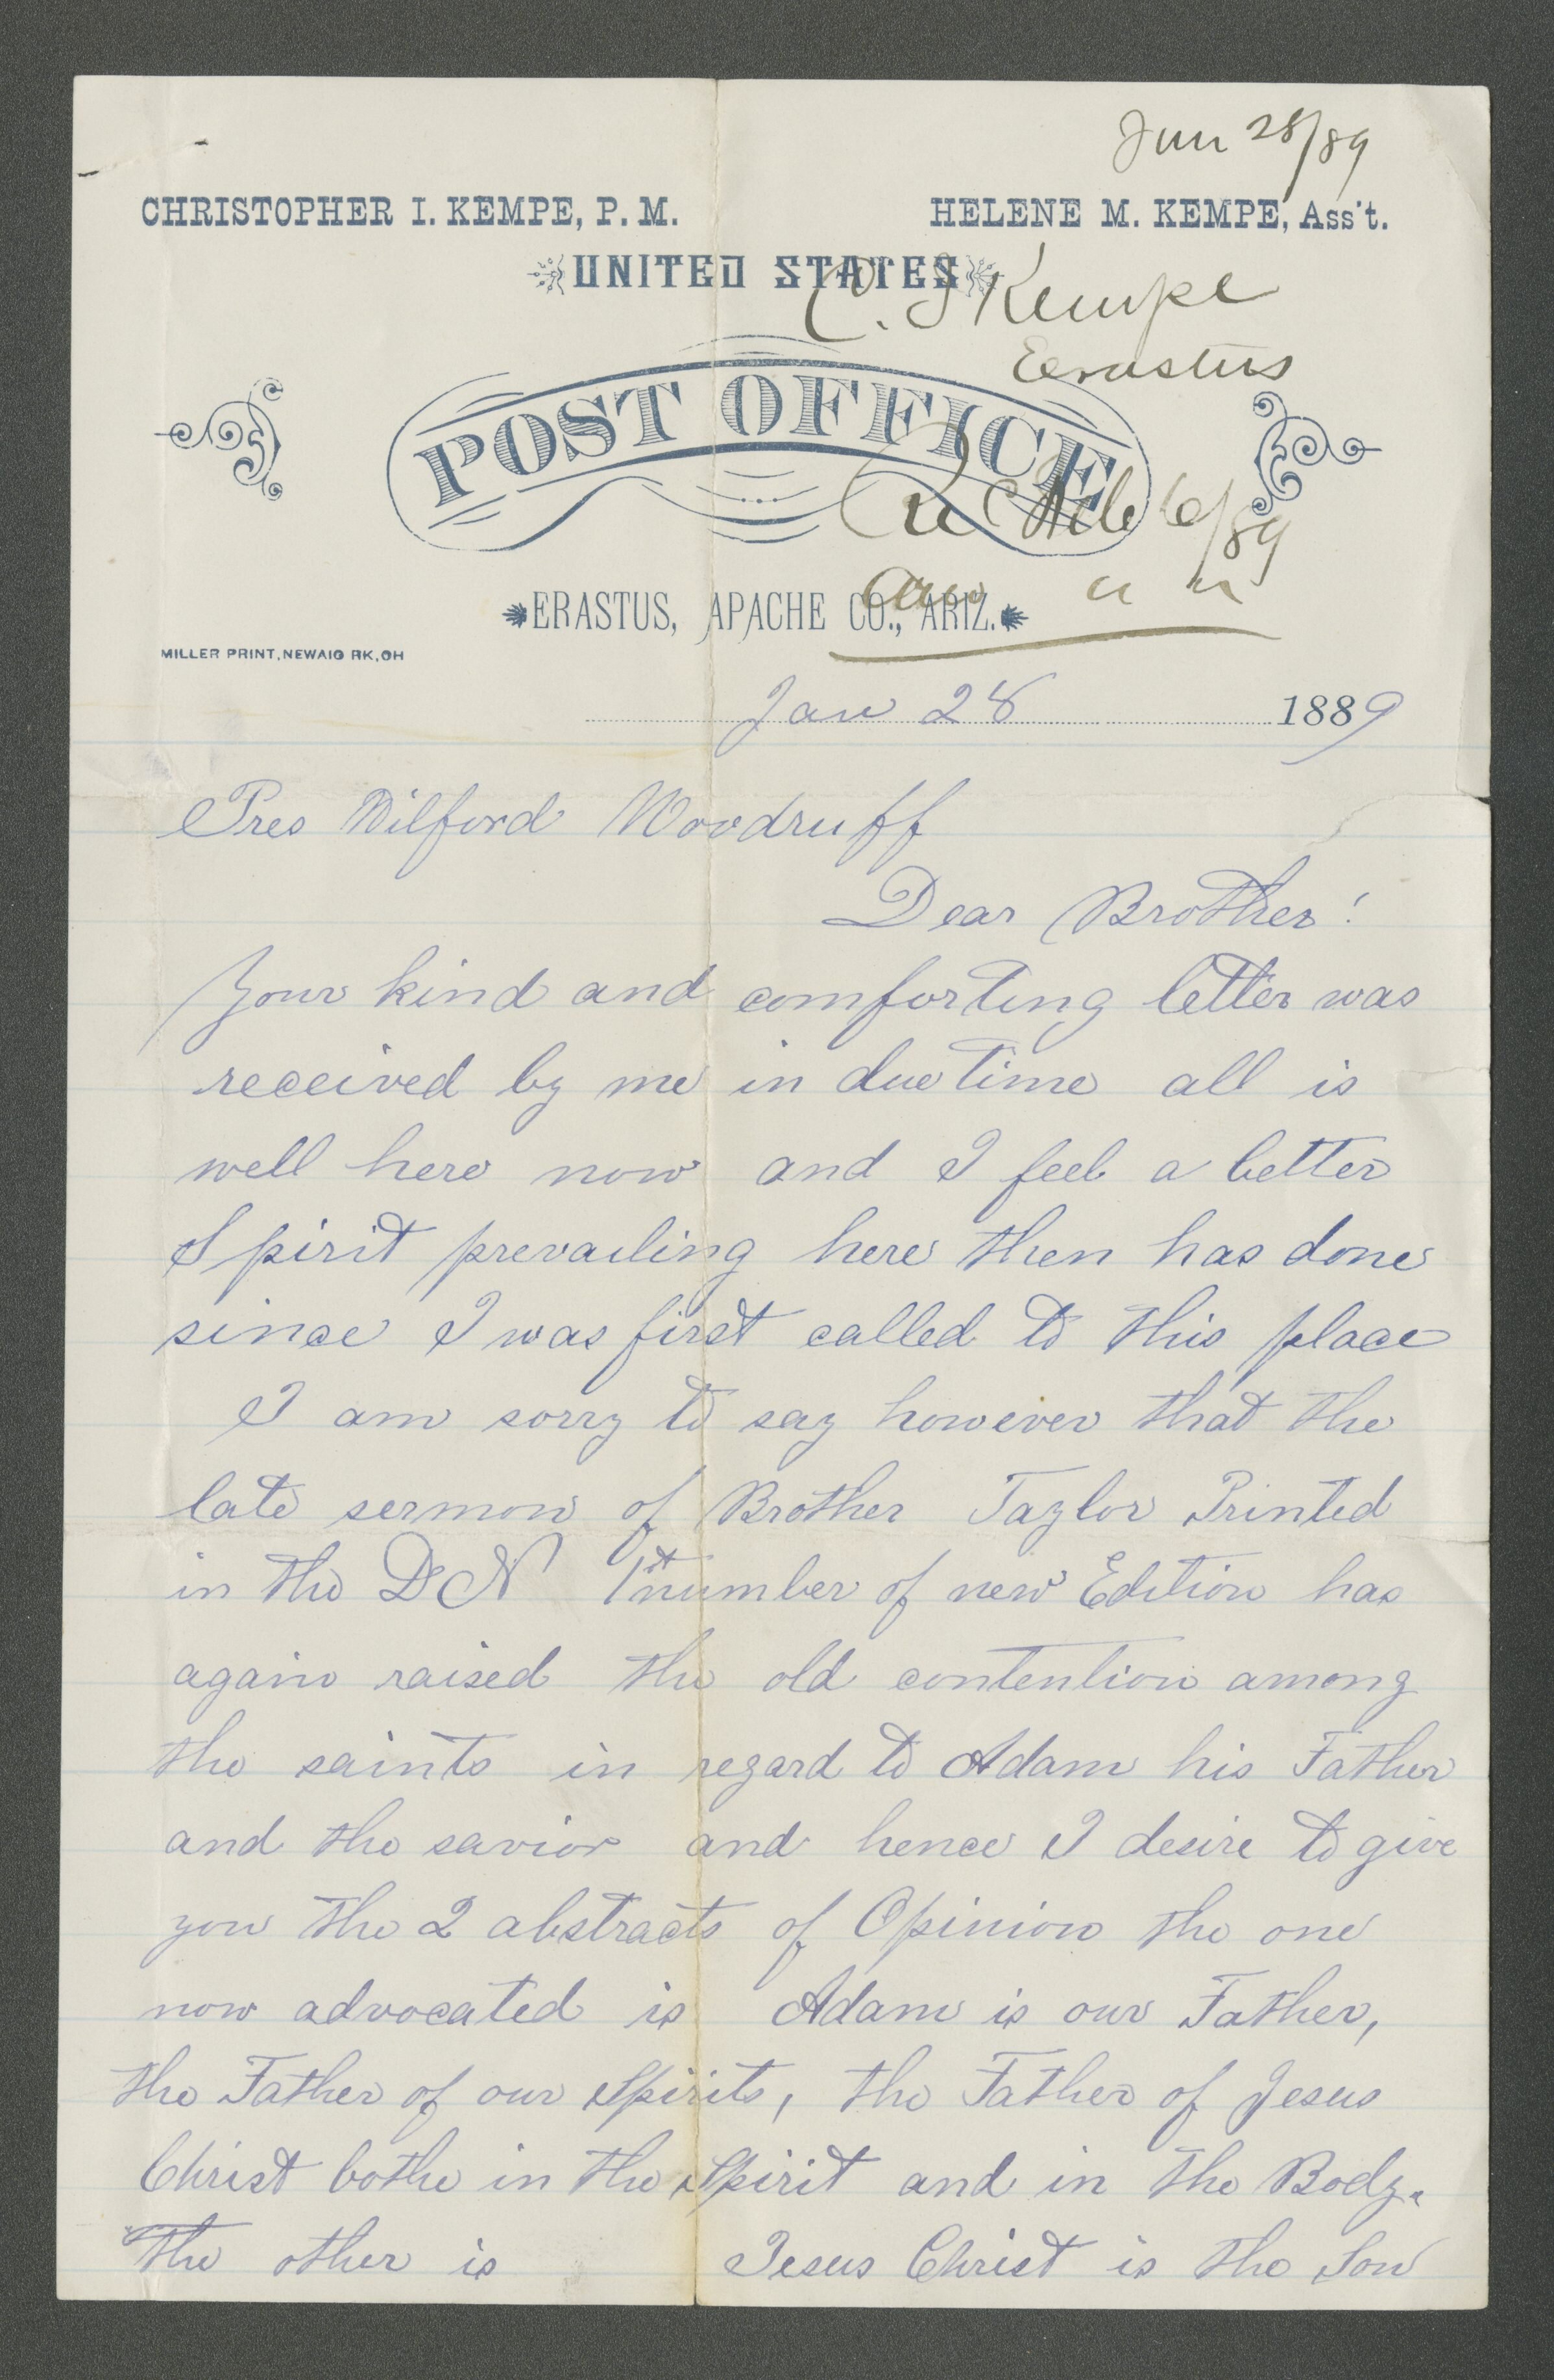 Jan 28/89
CHRISTOPHER I. KEMPE, P. M.
HELENE M. KEMPE, Ass't.
UNITED STATES
C. I Kempe
Erastus
POST OFFICE
Rec Feb 6/89
ERASTUS, APACHE CO., ARIZ.
Ans " "
MILLER PRINT, NEWARK, OH
Jan 28 1889
Pres Wilford Woodruff
Dear Brother!
Your kind and comforting letter was
received by me in due time all is
well here now and I feel a better
Spirit prevailing here then has done
since I was first called to this place
I am sorry to say however that the
late sermon of Brother Taylor Printed
in the D N 1st number of new Edition has
again raised the old contention among
the saints in regard to Adam his Father
and the savior and hence I desire to give
you the 2 abstracts of Opinion the one
now advocated is Adam is our Father,
the Father of our Spirits, the Father of Jesus
Christ bothe in the Spirit and in the Body.
The other is Jesus Christ is the Son